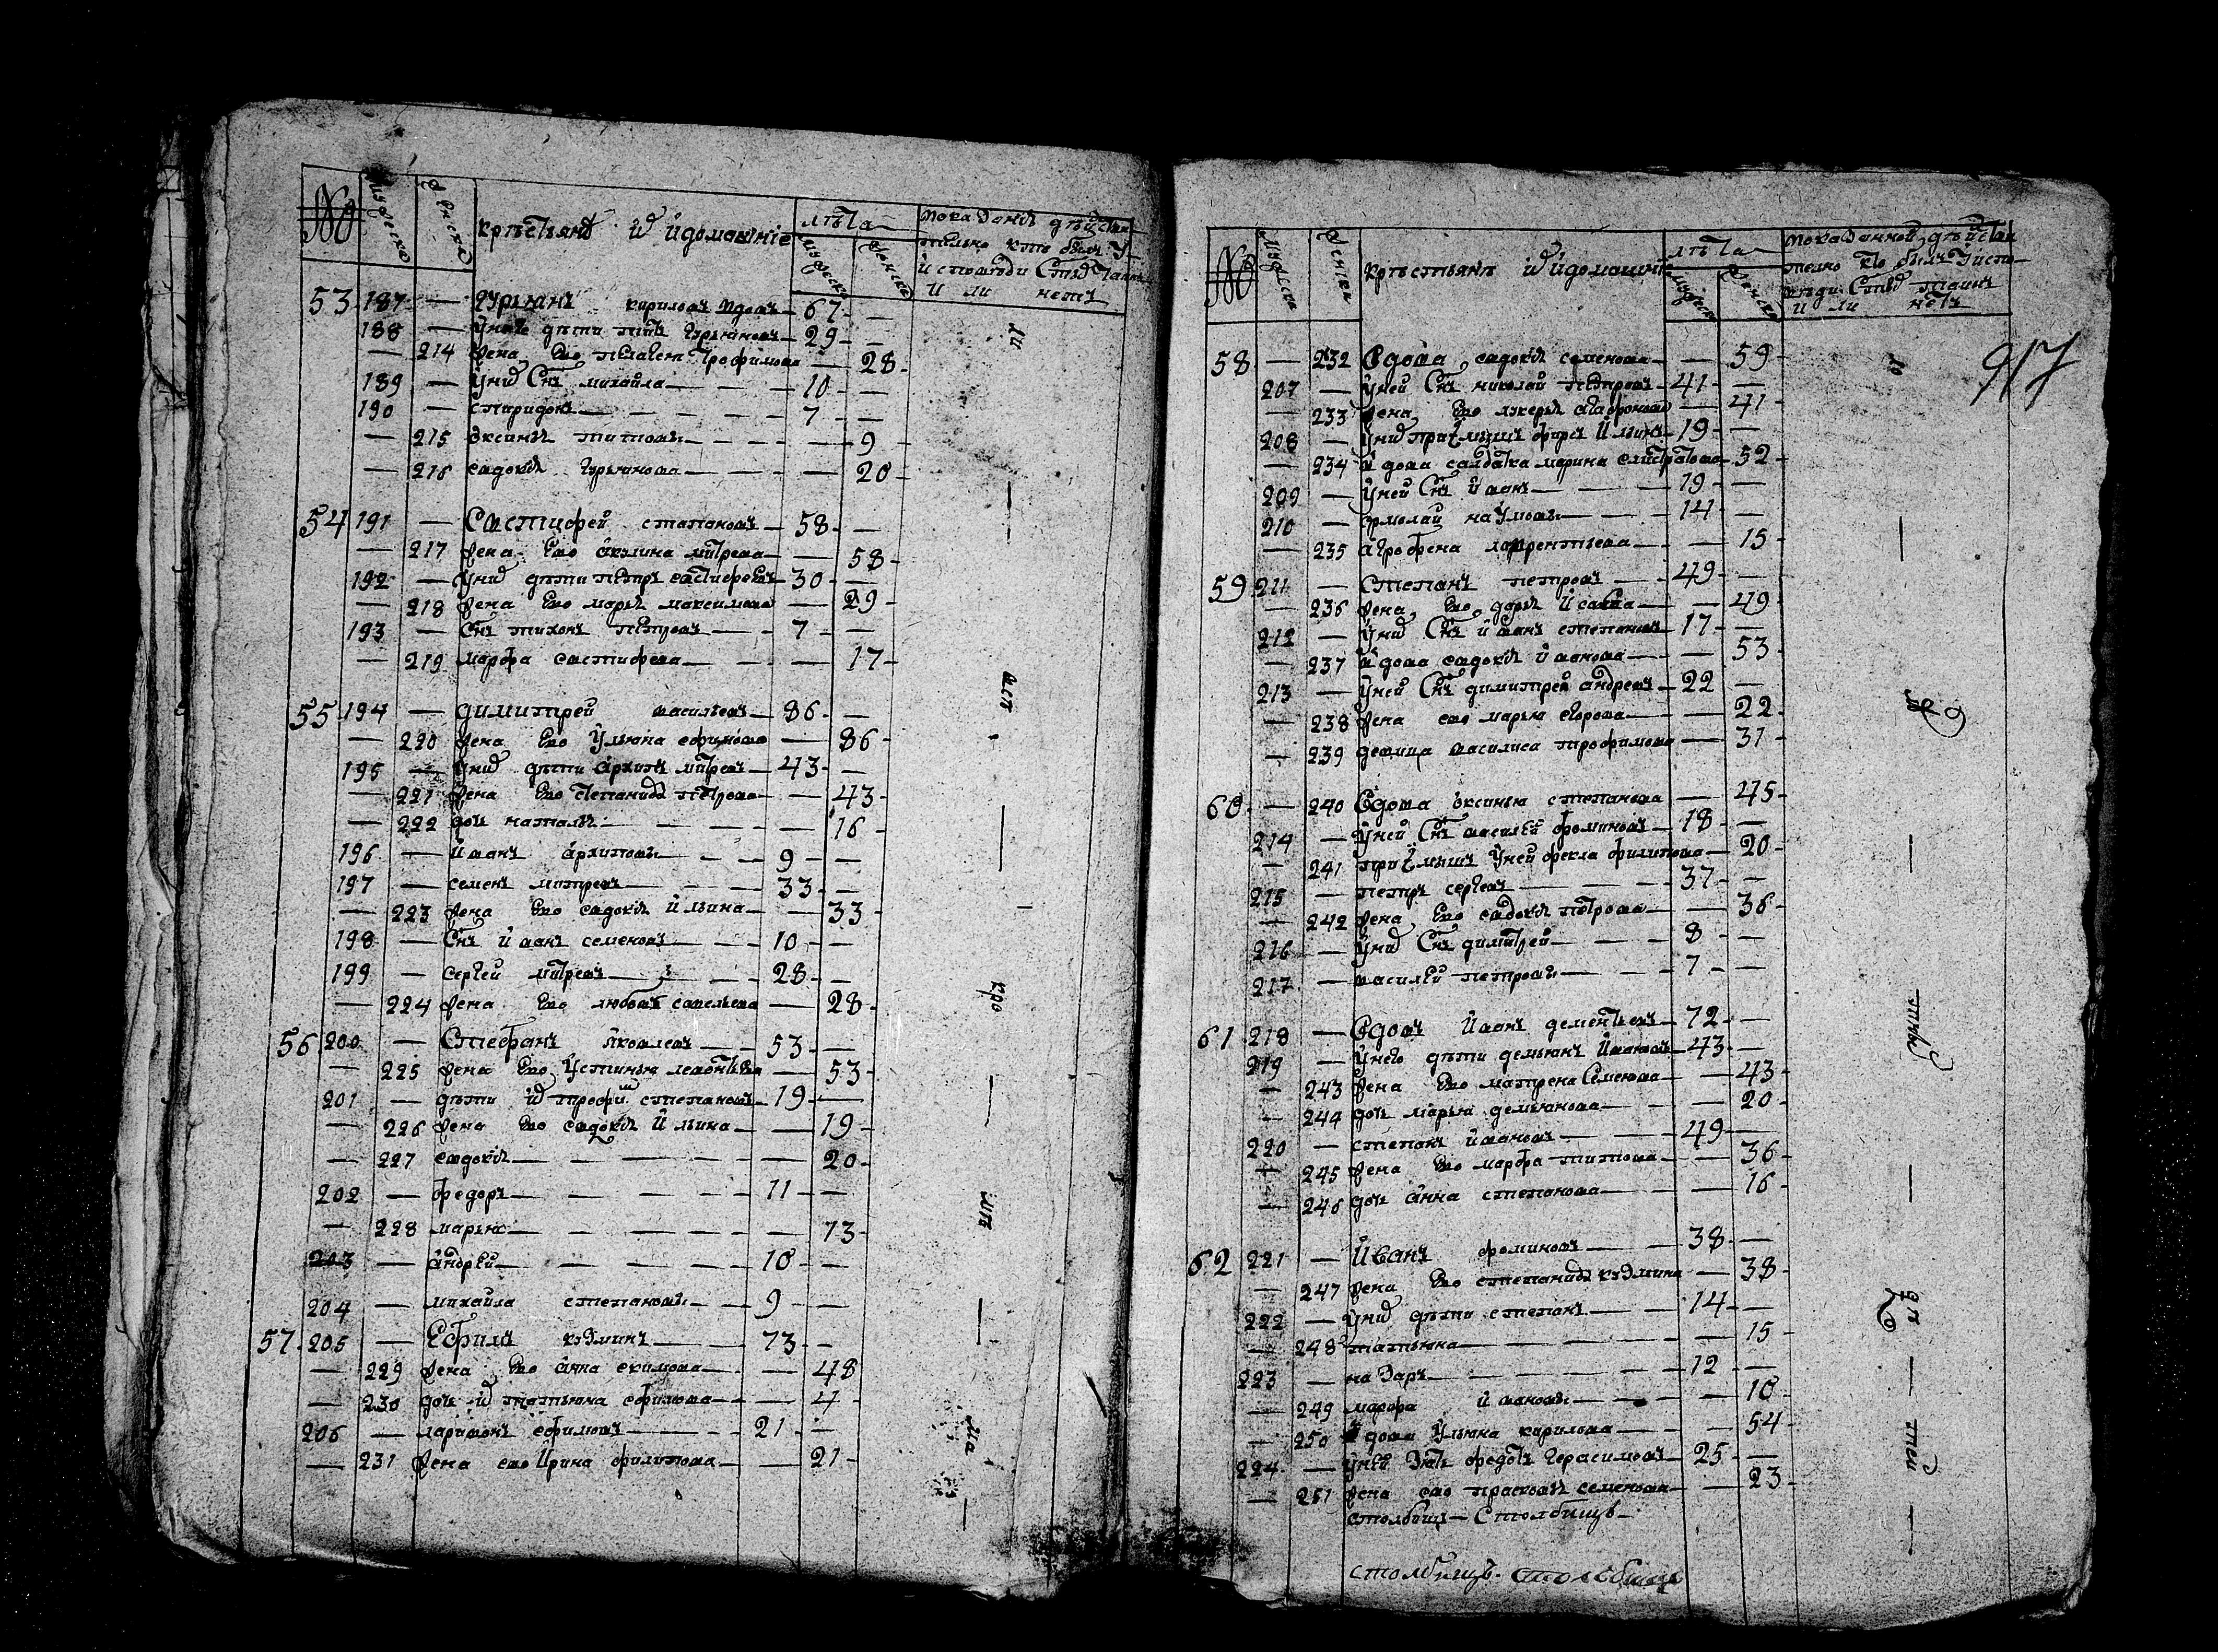 № мужеска женска крестьянѣ и ихъ домашніе лѣта
мужеска женска
или нетъ
53 187 — гурьянъ кириловъ вдовъ — 67 — —
188 — у него дети титъ гурьяновъ — 29 — —
— 214 жена ево пелагея трофимова — 28 —
189 — у них снъ михайла — — 10 — —
190 — спиридонъ — — — 7 — —
— 215 оксинья титовы — — — — 9 —
— 216 евдокия гурьянова — — — — 20 —
54 191 — Евстифей степановъ — 58 — —
— 217 жена ево акулина митрева — — 58 —
192 — у них дети петръ евстифеевъ — 30 — —
— 218 жена ево марья максимова — 29 —
193 — снъ тихонъ петровъ — 7 — —
— 219 марфа евстифева — — — 17 —
55 194 — димитрей васильевъ — 86 — —
— 220 жена ево ульяна ефимова — 86 —
195 — у них дети архипъ митревъ — 43 — —
— 221 жена ево степанида петрова — — 43 —
— 222 дочь наталья — — — — 16 —
196 — иванъ архиповы — — 9 — —
197 — семенъ митревъ — — 33 — —
— 223 жена ево евдокия ильина — — 33 —
198 — снъ иванъ семеновъ — — 10 — —
199 — сергей митревъ — — 28 — —
— 224 жена ево любовь савельева — 28 —
56 200 — Стефанъ яковлевъ — — 53 — —
— 225 жена ево устинья леонтьева — 53 —
201 — дети их трофи степановъ — 19 — —
— 226 жена ево евдокия ильина — — 19 —
— 227 евдокия — — — — 20 —
202 — федоръ — — — — 11 — —
— 228 марья — — — — — 13 —
203 — андрей — — — — 10 — —
204 — михайла степановы — — 9 — —
57 205 — Ефимъ кузминъ — — 73 — —
— 229 жена ево анна екимова — — 48
— 230 дочь их татьяна ефимова — — 4 —
206 — ларионъ ефимовъ — — 21 — —
— 231 жена ево ирина филипова — — 21 —
№ мужеска женска крестьянѣ и ихъ домашніе лѣта
мужеска женска
или нетъ
917
58 — 232 вдова евдокия семенова — — 59 —
207 — у ней снъ николай петровъ — 41 — —
— 233 жена ево лукерья агафонова — 41 —
208 — у них приемышъ фирсъ ильинъ — 19 — —
— 234 вдова салдатка марина — 52 —
209 — у ней снъ иванъ — — 19 — —
210 — ермолай наумовы — — 14 — —
— 235 аграфена лаврентьева — — 15 —
59 211 — Степанъ петровъ — — 49 — —
— 236 жена ево дарья исаева — — 49 —
212 — у них снъ иванъ степановъ — 17 — —
— 237 вдова евдокия иванова — — 53 —
213 — у ней снъ димитрей андревъ — 22 —
— 238 жена ево марья егорова — — 22 —
— 239 девица василиса трофимова — 31 —
60 — 240 вдова оксинья степанова — 45 —
214 — у ней снъ василей фоминовъ — 18 — —
— 241 приемышъ у ней фекла филипова — 20 —
215 — петръ сергевъ — — 37 — —
— 242 жена ево евдокия петрова — — 36 —
216 — у них снъ димитрей — — 8 — —
217 — василей петровы — — 7 — —
61 218 — вдовъ иванъ дементьевъ — 72 — —
219 — у него дети демьянъ ивановъ — 43 — —
— 243 жена ево матрена семенова — — 43 —
— 244 дочь марья демьянова — — 20 —
220 — степанъ ивановъ — — 49 — —
— 245 жена ево марфа титова — — 36 —
— 246 дочь анна степанова — — 16 —
62 221 — Иванъ фоминовъ — — 38 — —
— 247 жена ево степанида кузмина — 38 —
222 — у них дети степанъ — — 14 — —
— 248 татьяна — — — — 15 —
223 — назаръ — — — — 12 — —
— 249 марфа ивановы — — — 10 —
— 250 вдова ульяна кирилова — — 54 —
224 — у ней зять федотъ герасимовъ — 25 — —
— 251 жена ево прасковья семенова — — 23 —
столбищъ — Столбищъ —
столбищъ.